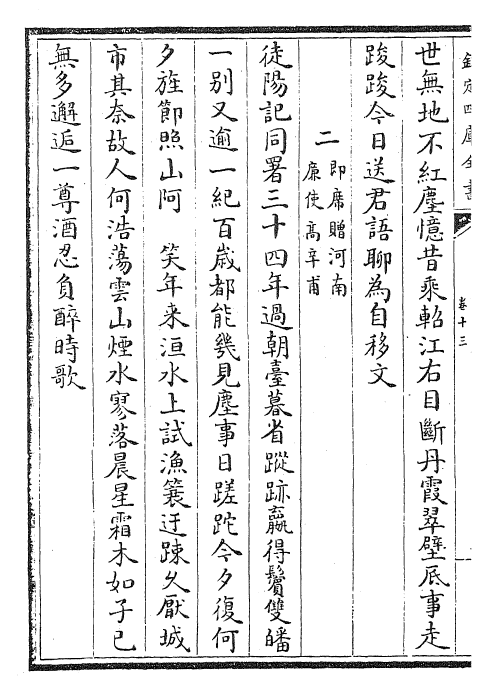 欽定四庫全書
卷十三
世無地不紅塵憶昔乘軺江右目斷丹霞翠壁底事走
踆踆今日送君語聊為自移文
二即席贈河南
廉使高辛甫
徒陽記同署三十四年過朝臺暮省蹤跡羸得鬢雙皤
一别又逾一紀百歲都能幾見塵事日蹉跎今夕復何
夕旌節照山阿 笑年来洹水上試漁簑迂踈久厭城
市其奈故人何浩蕩雲山煙水寥落晨星霜木如子已
無多邂逅一尊酒忍負醉時歌